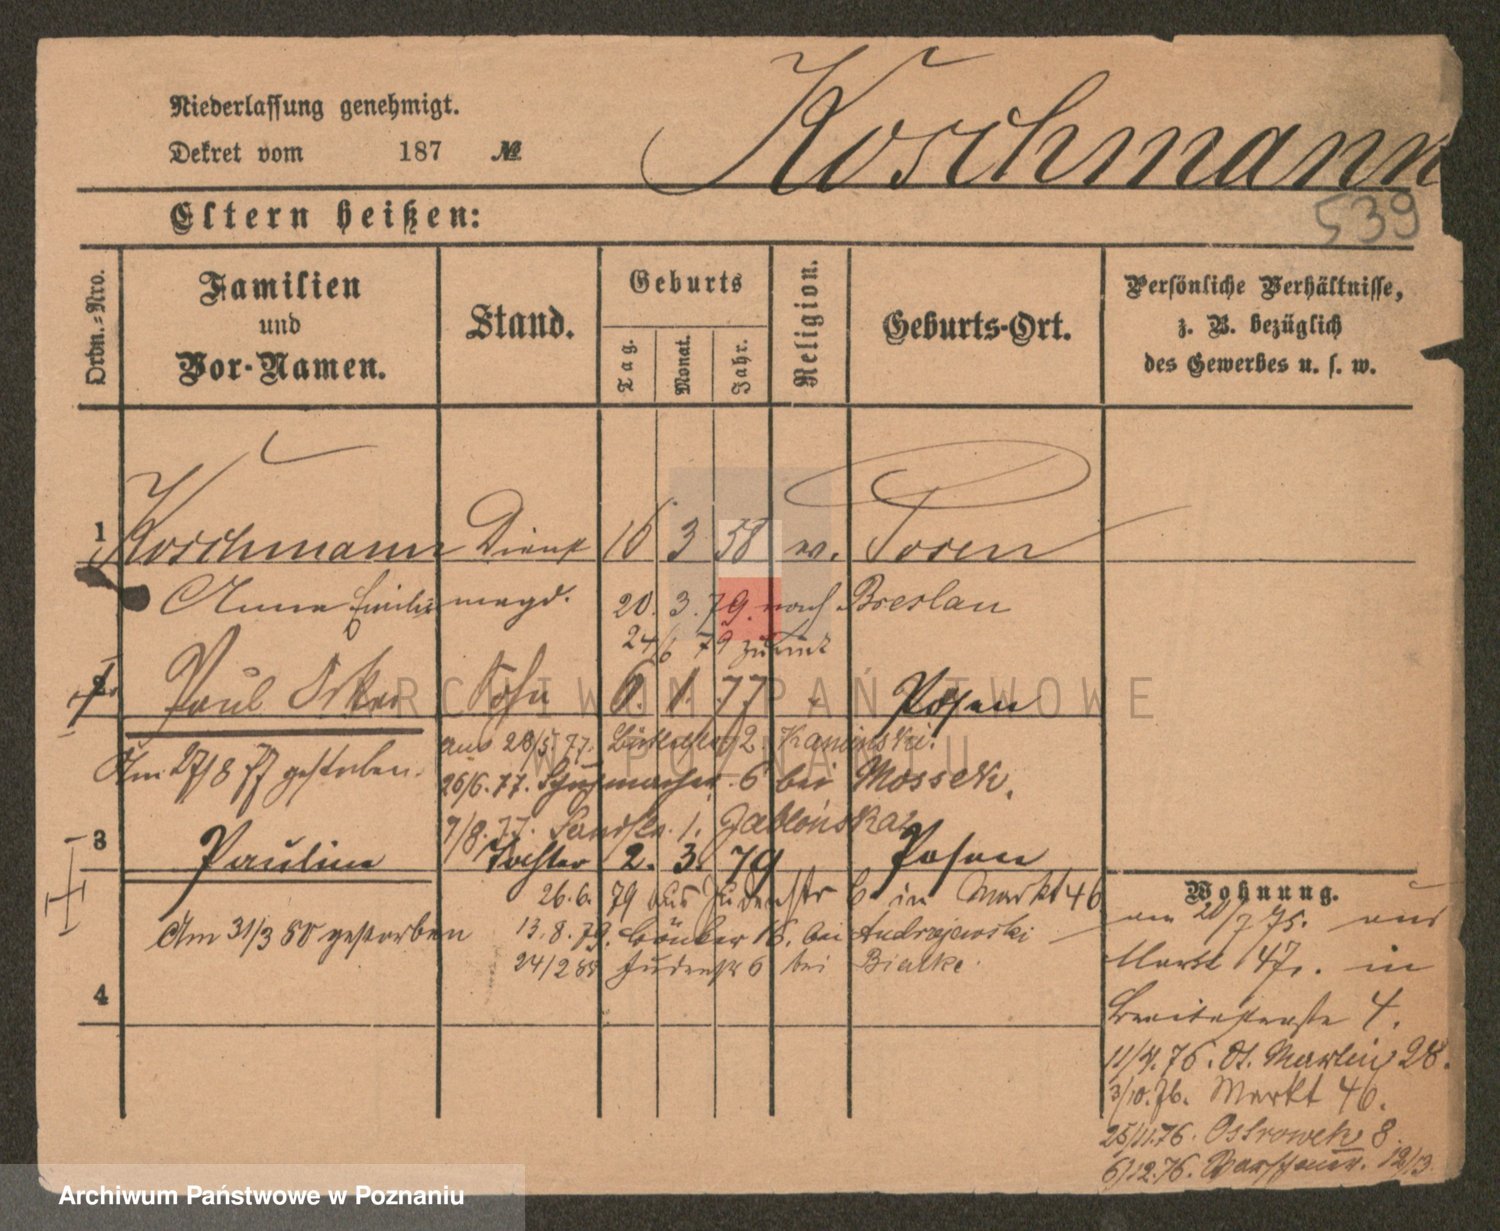 Niederlassung genehmigt.
Dekret vom 187 №
Koschmann
539
Eltern heißen:
Ordn.-Nro.
Familien
und
Vor-Namen.
Stand.
Geburts
Tag.
Monat.
Jahr.
Religion.
Geburts-Ort.
Persönliche Verhältnisse,
z. B. bezüglich
des Gewerbes u. s. w.
1 Koschmann Dienst 16 3 58 w. Posen
Anna Emilie magd. 20. 3. 79. nach Breslau
24/6 79 zurück
2 Paul Oskar Sohn 6. 1. 77 Posen
ARCHIWUM PAŃSTWOWE
W POZNANIU
aus 28/5 77. 2. Kaminski.
Am 27/8 77 gestorben.
26/6. 77. Schuhmacher. 6 bei Mosseck.
7/8. 77. 1. Jablonska
3 Pauline Tochter 2. 3. 79 Posen
26. 6. 79 aus Judenstr 6 in Markt 46
Am 31/3 80 gestorben 13. 8. 79. 16. bei Andrzejewski
24/2 80 Judenstr 6 bei Bialke.
4
Wohnung.
am 20/7 75. aus
Markt 47. in
Breitestraße 4.
11/4. 76. St. Martin 28.
3/10. 76. Markt 46.
25/11. 76. Ostrowek 8.
6/12. 76. 12/13.
Archiwum Państwowe w Poznaniu